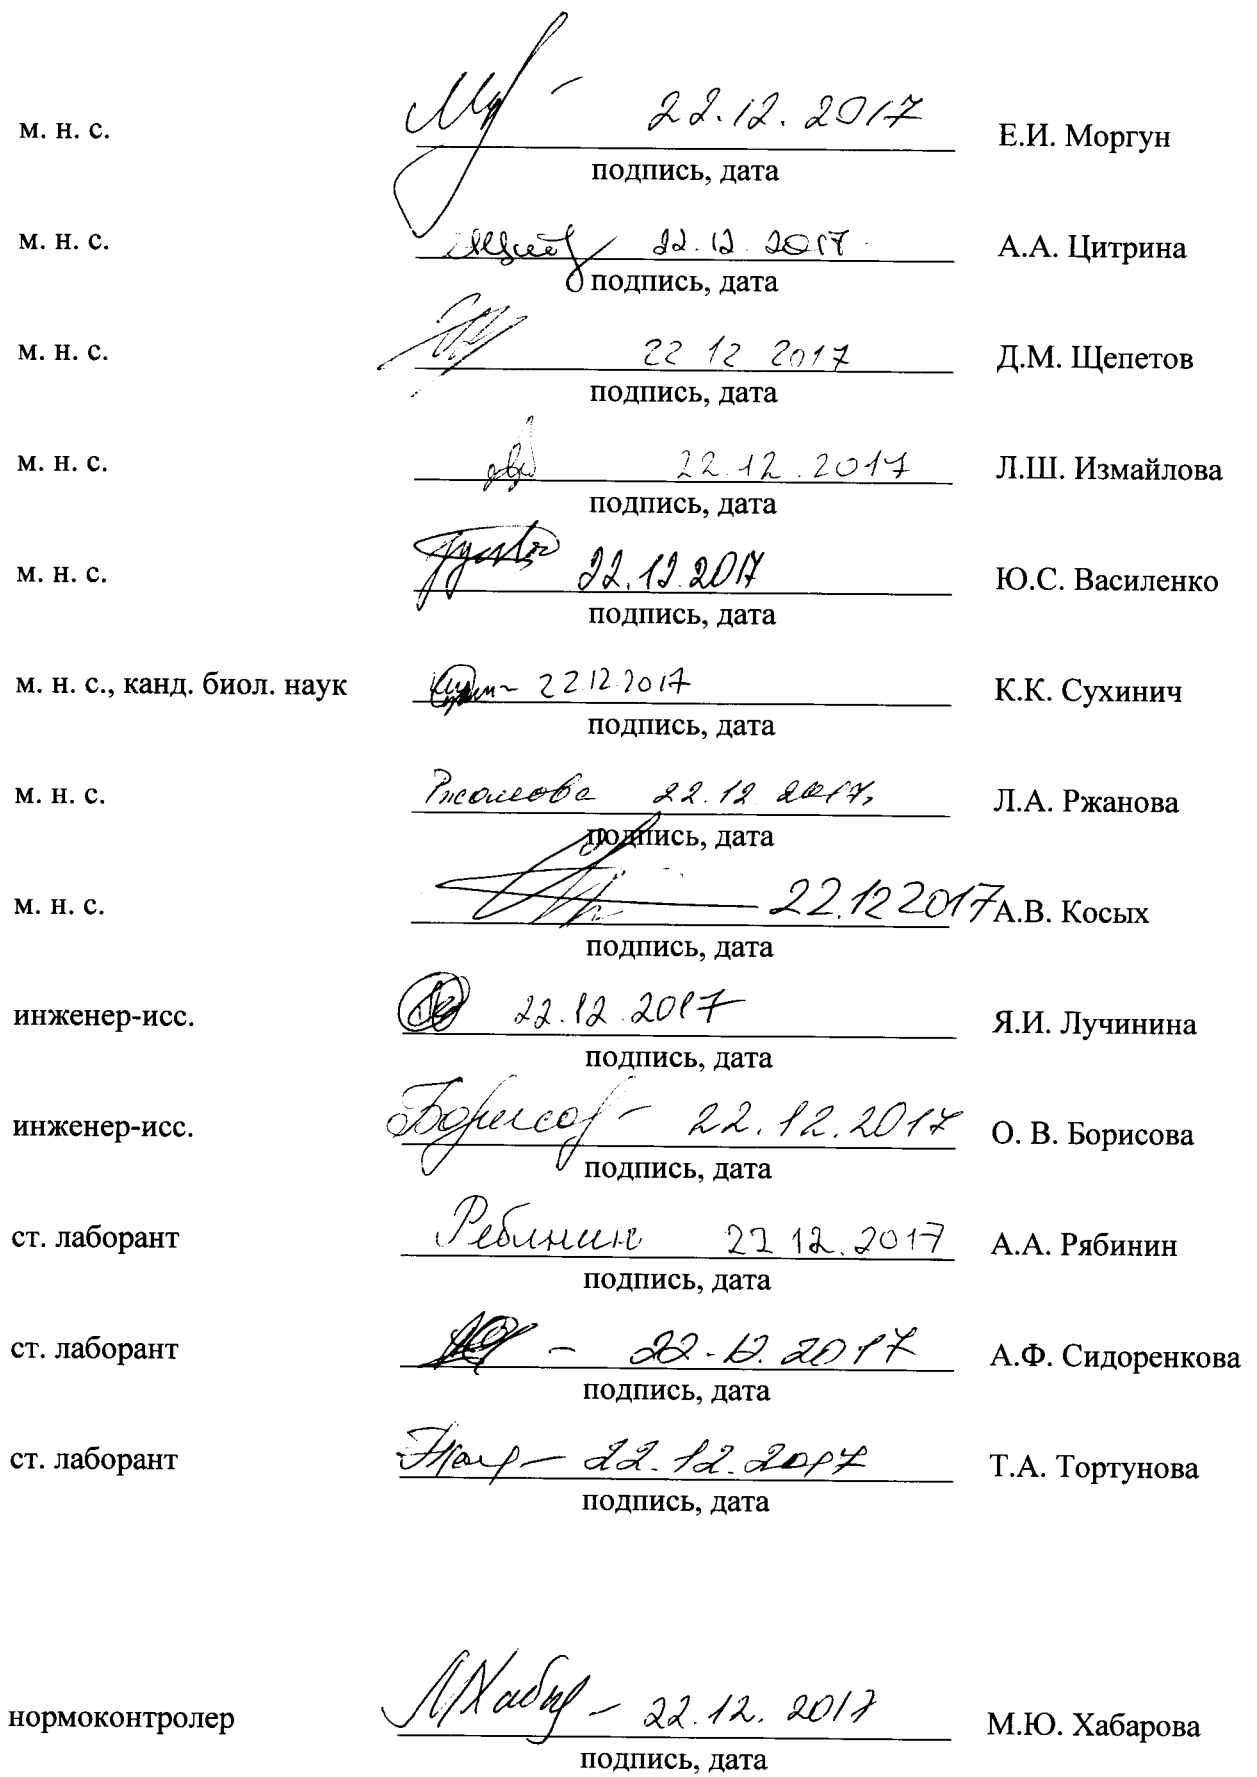 м. н. с. 22.12.2017 Е.И. Моргун
подпись, дата
м. н. с. 22.12.2017 А.А. Цитрина
подпись, дата
м. н. с. 22 12 2017 Д.М. Щепетов
подпись, дата
м. н. с. 22.12.2017 Л.Ш. Измайлова
подпись, дата
м. н. с. 22.12.2017 Ю.С. Василенко
подпись, дата
м. н. с., канд. биол. наук 22 12 2017 К.К. Сухинич
подпись, дата
м. н. с. Ржанова 22.12 2017. Л.А. Ржанова
подпись, дата
м. н. с. 22.12 2017 А.В. Косых
подпись, дата
инженер-исс. 22.12.2017 Я.И. Лучинина
подпись, дата
инженер-исс. Борисов 22.12.2017 О. В. Борисова
подпись, дата
ст. лаборант 22 12.2017 А.А. Рябинин
подпись, дата
ст. лаборант 22.12.2017 А.Ф. Сидоренкова
подпись, дата
ст. лаборант 22.12.2017 Т.А. Тортунова
подпись, дата
нормоконтролер 22.12.2017 М.Ю. Хабарова
подпись, дата